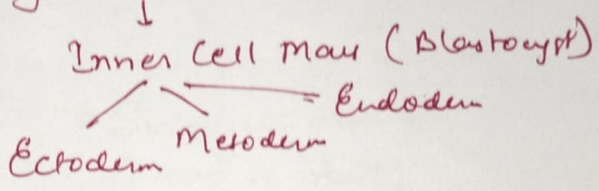 Inner Cell Mass (Blastocyst)
Endoderm
Mesoderm
Ectoderm